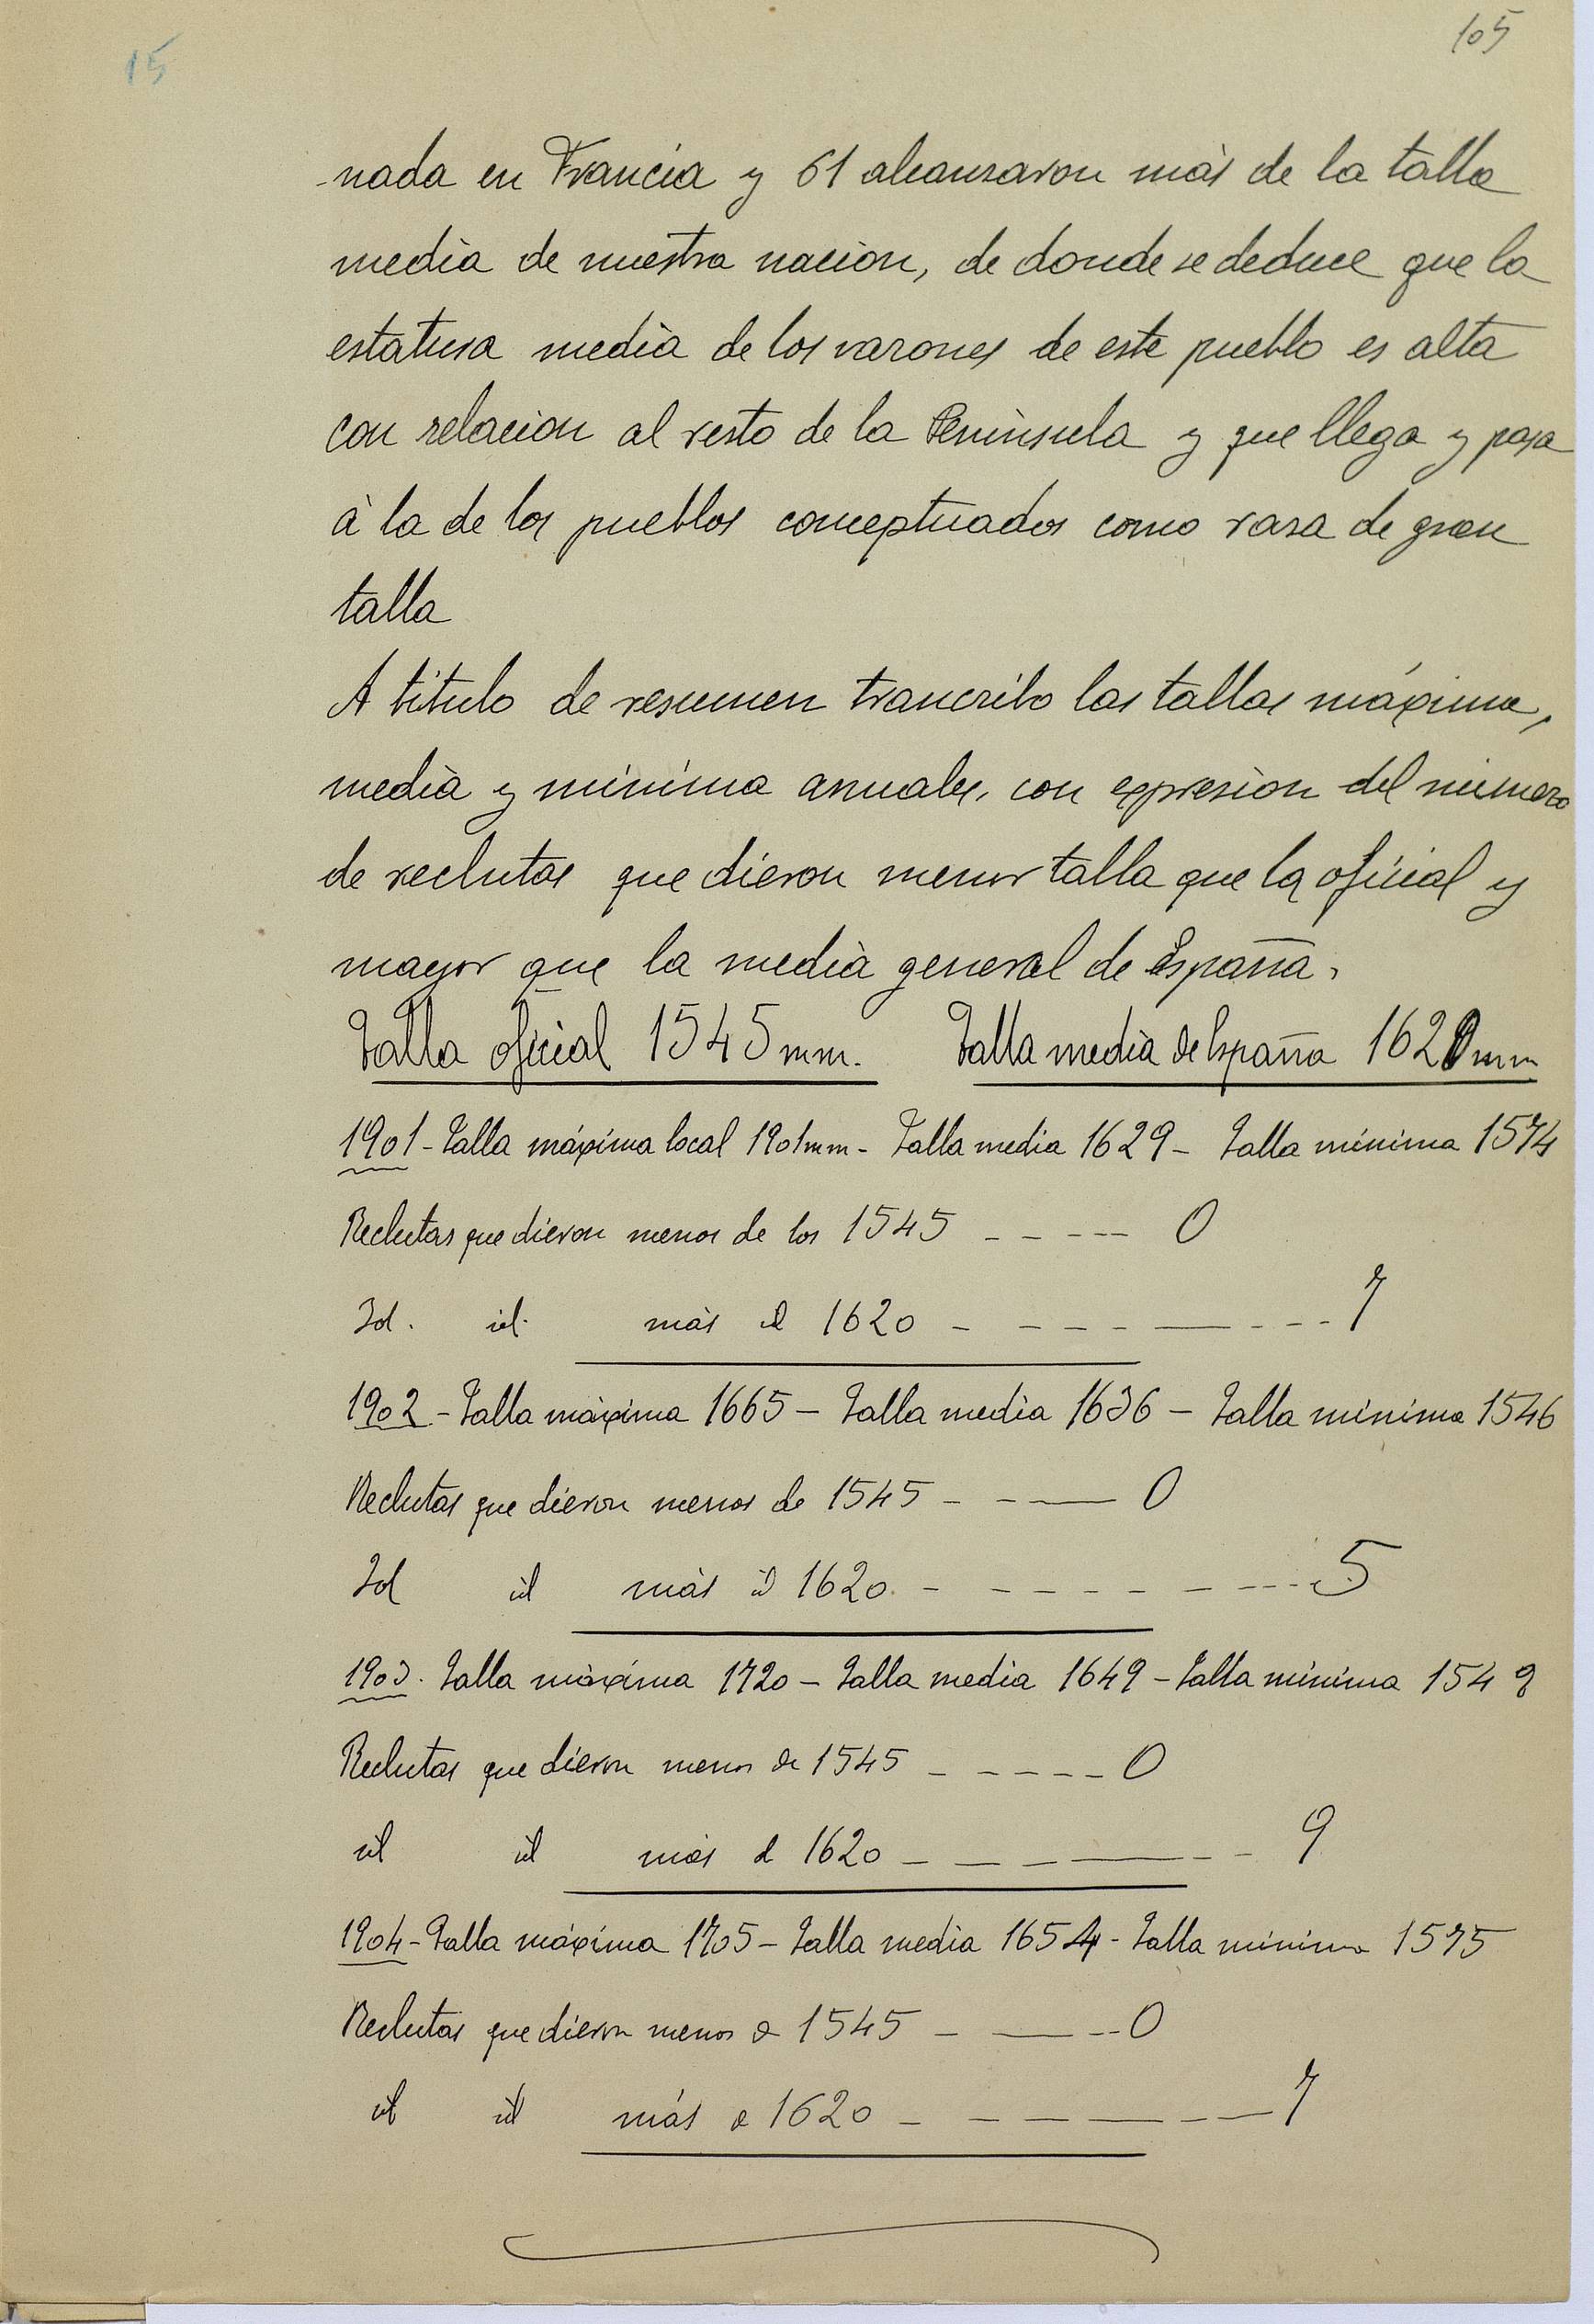 15
105
nada en Francia y 61 alcanzaron más de la talla
media de nuestra nación, de donde se deduce que la
estatura media de los varones de este pueblo es alta
con relacion al resto de la Peninsula y que llega y pasa
à la de los pueblos conceptuados como raza de gran
talla
A titulo de resumen trancribo las tallas máxima,
media y minima anuales, con expresion del número
de reclutas que dieron menor talla que la oficial y
mayor que la media general de España.
Talla oficial 1545 mm. Talla media de España 1620 mm
1901 - Talla máxima local 1901 mm - Talla media 1629 - Talla minima 1574
Reclutas que dieron menos de los 1545 - - - - - 0
Id. id. más de 1620 - - - - - - - - - 7
1902 - Talla máxima 1665 - Talla media 1636 - Talla minima 1546
Reclutas que dieron menos de 1545 - - - 0
Id id más de 1620 - - - - - - - - - 5
1903. Talla máxima 1720 - Talla media 1649 - Talla minima 1549
Reclutas que dieron menos de 1545 - - - - - 0
id id más de 1620 - - - - - - 9
1904 - Talla máxima 1705 - Talla media 1654 - Talla minima 1575
Reclutas que dieron menos de 1545 - - - - 0
id id más de 1620 - - - - - - 7